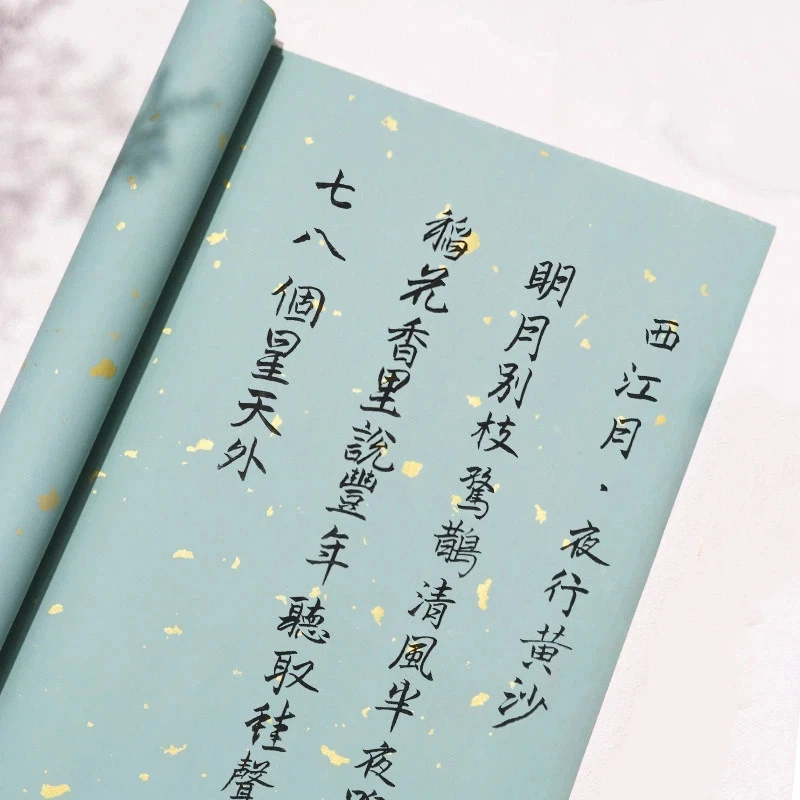 西江月·夜行黄沙
明月别枝驚鵲清風半夜
稻花香里說豐年聽取蛙聲
七八個星天外